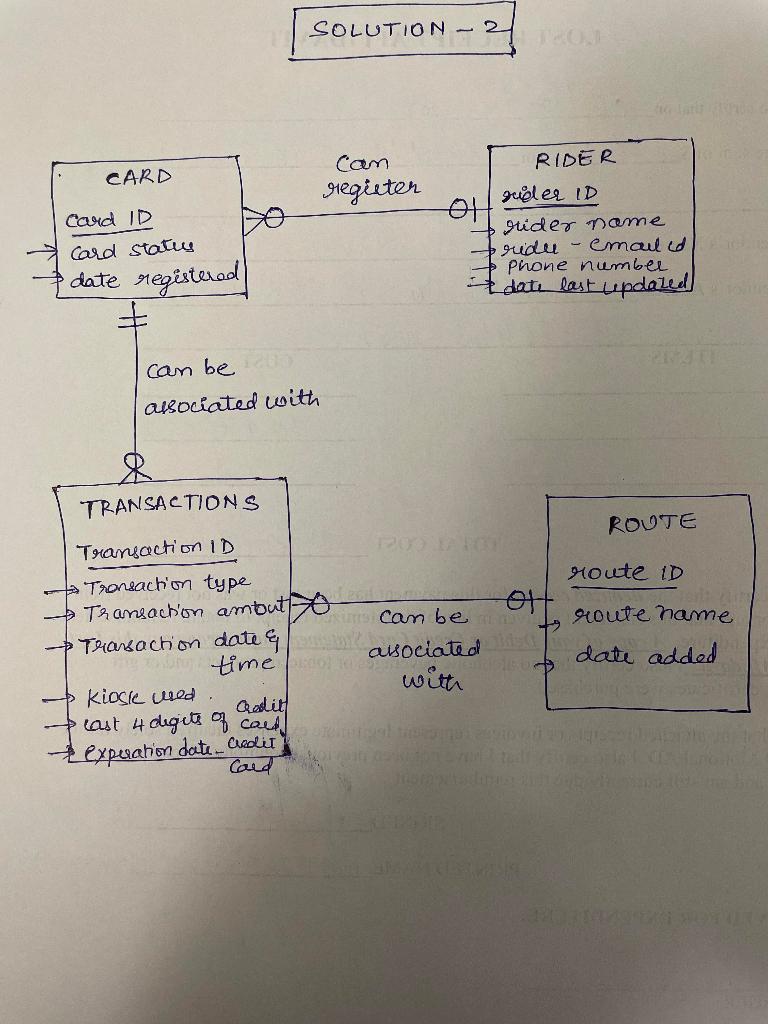 SOLUTION - 2
CARD
Card ID
Card status
date registered
Can
register
RIDER
rider ID
rider name
rider - email id
Phone number
date last updated
can be
associated with
TRANSACTIONS
Transaction ID
Transaction type
Transaction amount
Transaction date &
time
Kiosk used
Last 4 digits of Credit
Card
Expiration date - Credit
Card
can be
associated
with
ROUTE
route ID
route name
date added